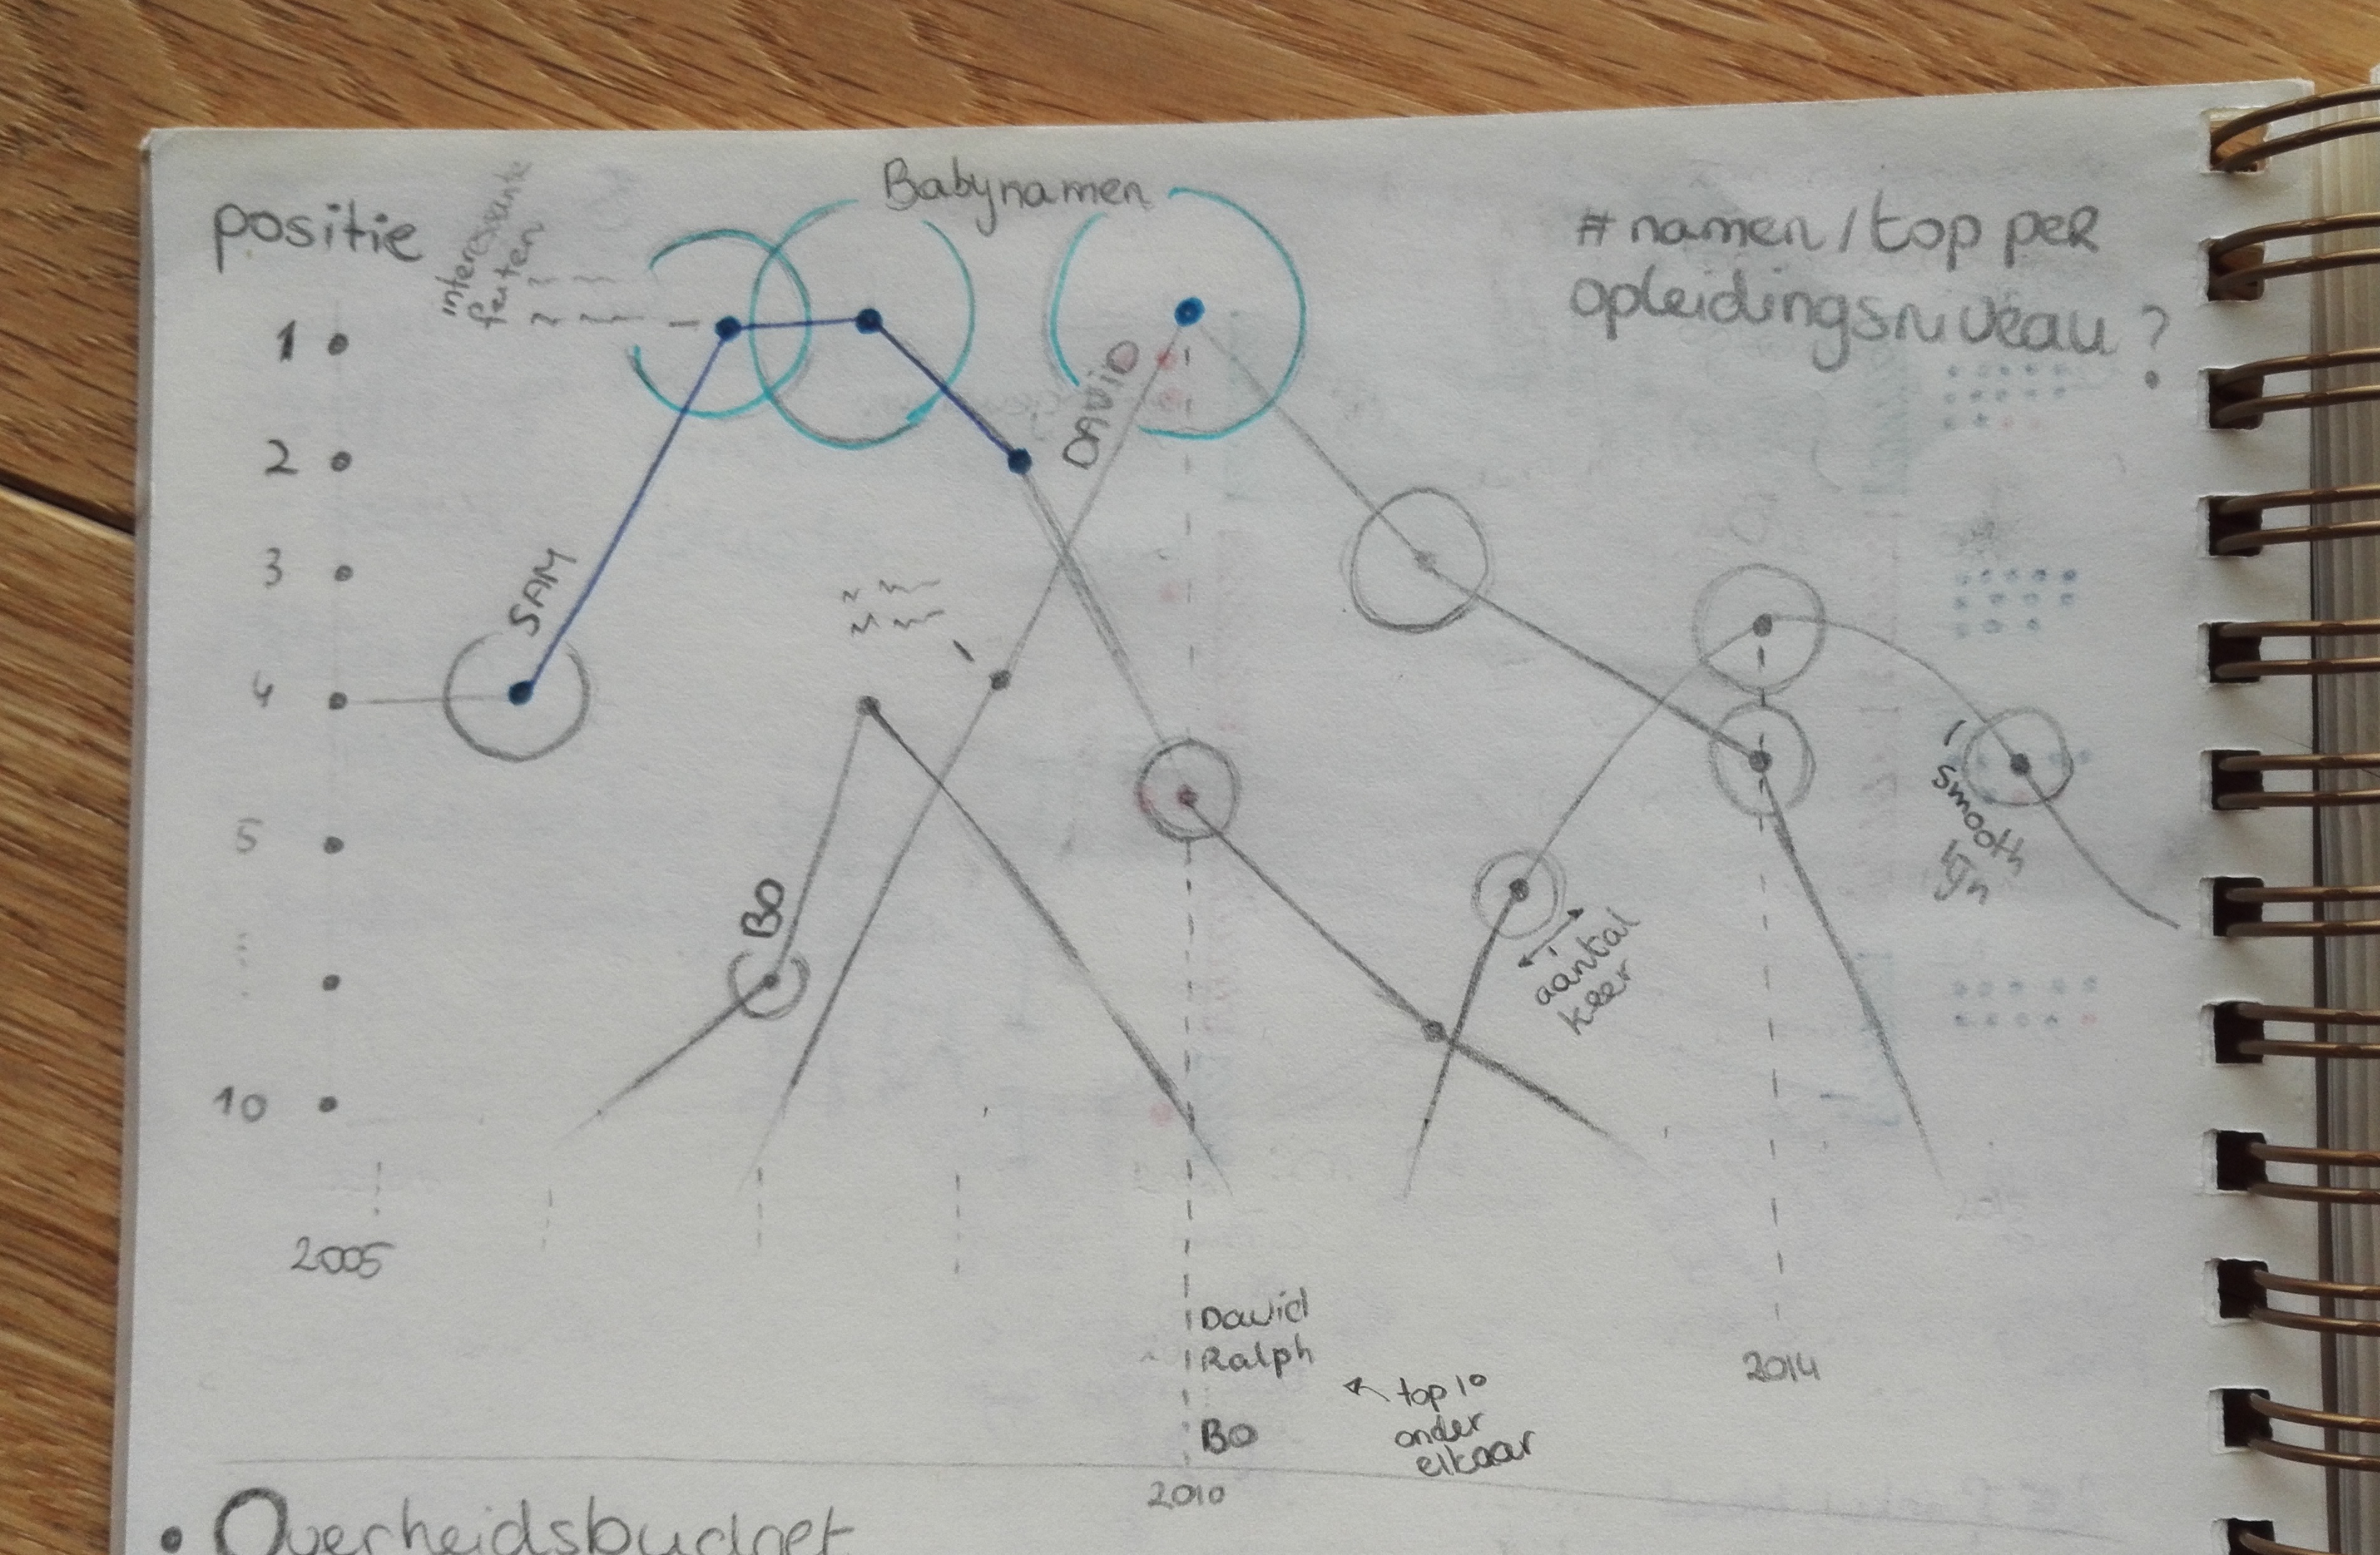 Babynamen
positie
interessante
feiten
# namen / top per
opleidingsniveau ?
1
2
3
4
5
10
DAViD
SAM
BO
smooth
lijn
aantal
keer
2005
David
Ralph
BO
top 10
onder
elkaar
2010
2014
• Overheidsbudget